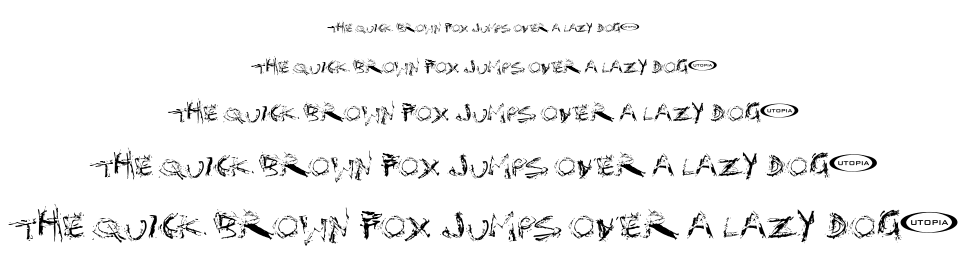 THE QUICK BROWN FOX JUMPS OVER A LAZY DOG UTOPIA
THE QUICK BROWN FOX JUMPS OVER A LAZY DOG UTOPIA
THE QUICK BROWN FOX JUMPS OVER A LAZY DOG UTOPIA
THE QUICK BROWN FOX JUMPS OVER A LAZY DOG UTOPIA
THE QUICK BROWN FOX JUMPS OVER A LAZY DOG UTOPIA